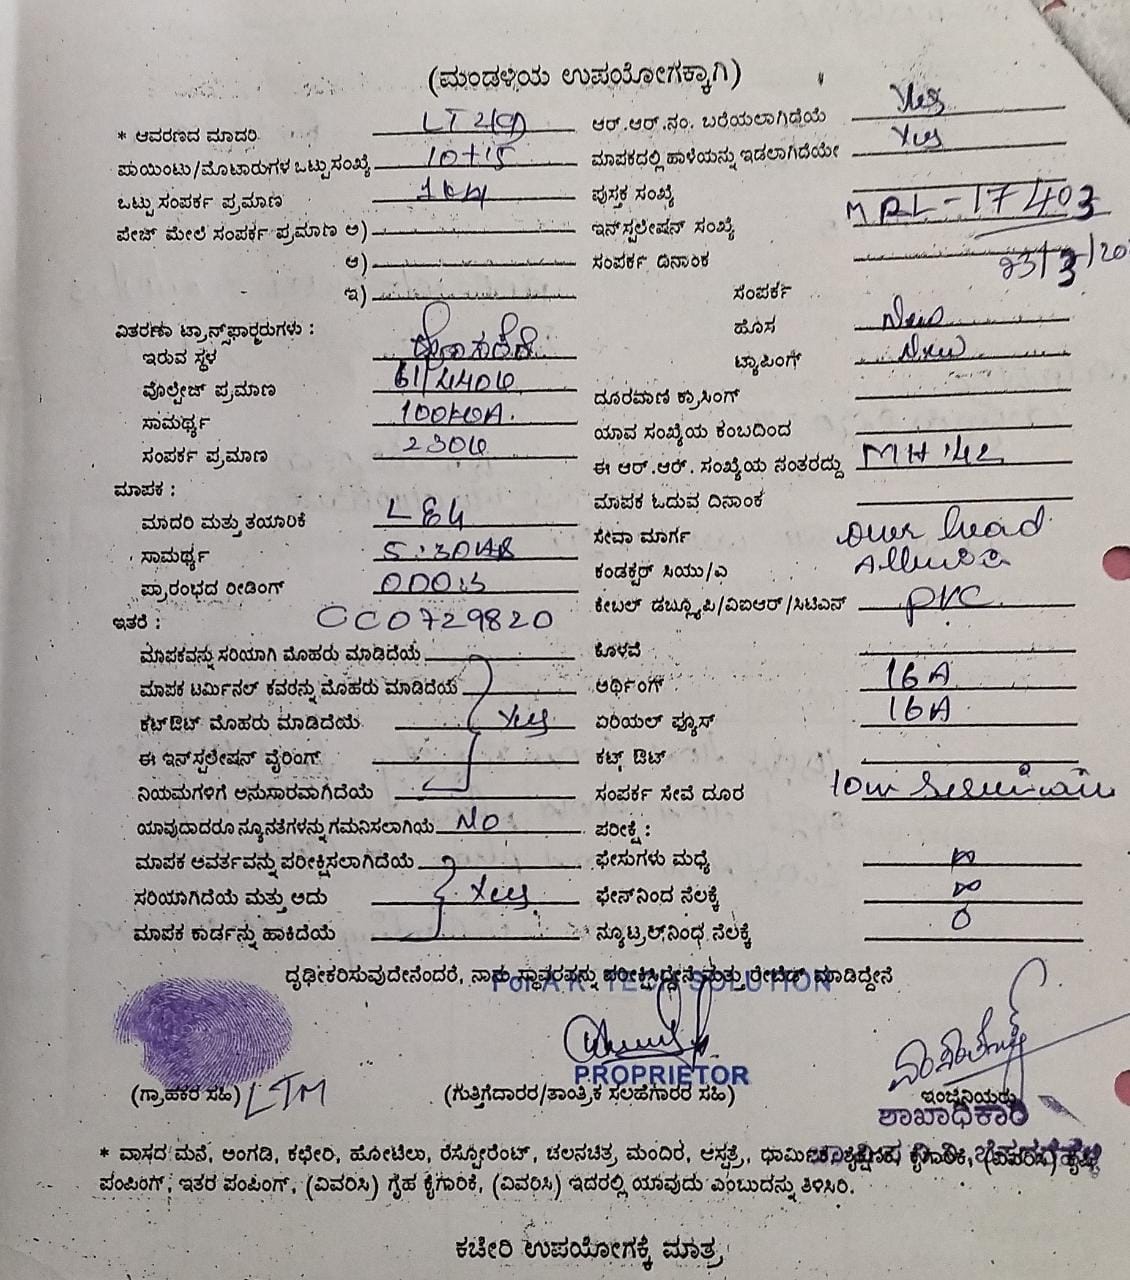 (ಮಂಡಳಿಯ ಉಪಯೋಗಕ್ಕಾಗಿ)
* ಆವರಣದ ಮಾದರಿ ಆರ್.ಆರ್.ನಂ. ಬರೆಯಲಾಗಿದೆಯೆ Yes
ಪಾಯಿಂಟು/ಮೊಟಾರುಗಳ ಒಟ್ಟು ಸಂಖ್ಯೆ 10+15 ಮಾಪಕದಲ್ಲಿ ಹಾಳೆಯನ್ನು ಇಡಲಾಗಿದೆಯೇ Yes
ಒಟ್ಟು ಸಂಪರ್ಕ ಪ್ರಮಾಣ ಪುಸ್ತಕ ಸಂಖ್ಯೆ
ಪೇಜ್ ಮೇಲೆ ಸಂಪರ್ಕ ಪ್ರಮಾಣ ಅ) ಇನ್‌ಸ್ಟಲೇಷನ್ ಸಂಖ್ಯೆ MRL-17403
ಆ) ಸಂಪರ್ಕ ದಿನಾಂಕ 23/3/20
ಇ) ಸಂಪರ್ಕ
ವಿತರಣಾ ಟ್ರಾನ್ಸ್‌ಫಾರ್‍ಮರುಗಳು : ಹೊಸ New
ಇರುವ ಸ್ಥಳ ಟ್ಯಾಪಿಂಗ್ New
ವೊಲ್ಟೇಜ್ ಪ್ರಮಾಣ ದೂರವಾಣಿ ಕ್ರಾಸಿಂಗ್
ಸಾಮರ್ಥ್ಯ ಯಾವ ಸಂಖ್ಯೆಯ ಕಂಬದಿಂದ
ಸಂಪರ್ಕ ಪ್ರಮಾಣ ಈ ಆರ್.ಆರ್. ಸಂಖ್ಯೆಯ ನಂತರದ್ದು
ಮಾಪಕ : ಮಾಪಕ ಓದುವ ದಿನಾಂಕ
ಮಾದರಿ ಮತ್ತು ತಯಾರಿಕೆ ಸೇವಾ ಮಾರ್ಗ over head
ಸಾಮರ್ಥ್ಯ ಕಂಡಕ್ಟರ್ ಸಿಯು/ಎ
ಪ್ರಾರಂಭದ ರೀಡಿಂಗ್ ಕೇಬಲ್ ಡಬ್ಲ್ಯೂಪಿ/ವಿಐಆರ್/ಸಿಟಿಎಸ್ PVC
ಇತರೆ : CC0729820
ಮಾಪಕವನ್ನು ಸರಿಯಾಗಿ ಮೊಹರು ಮಾಡಿದೆಯೆ ಕೊಳವೆ
ಮಾಪಕ ಟರ್ಮಿನಲ್ ಕವರನ್ನು ಮೊಹರು ಮಾಡಿದೆಯೆ ಅರ್ಥಿಂಗ್ 16A
ಕಟ್‌ಔಟ್ ಮೊಹರು ಮಾಡಿದೆಯೆ Yes ಏರಿಯಲ್ ಫ್ಯೂಸ್ 16A
ಈ ಇನ್‌ಸ್ಟಲೇಷನ್ ವೈರಿಂಗ್ ಕಟ್ಸ್ ಔಟ್
ನಿಯಮಗಳಿಗೆ ಅನುಸಾರವಾಗಿದೆಯೆ ಸಂಪರ್ಕ ಸೇವೆ ದೂರ
ಯಾವುದಾದರೂ ನ್ಯೂನತೆಗಳನ್ನು ಗಮನಿಸಲಾಗಿಯೆ NO ಪರೀಕ್ಷೆ :
ಮಾಪಕ ಆವರ್ತವನ್ನು ಪರೀಕ್ಷಿಸಲಾಗಿದೆಯೆ ಫೇಸುಗಳು ಮಧ್ಯೆ ∞
ಸರಿಯಾಗಿದೆಯೆ ಮತ್ತು ಅದು Yes ಫೇಸ್‌ನಿಂದ ನೆಲಕ್ಕೆ ∞
ಮಾಪಕ ಕಾರ್ಡನ್ನು ಹಾಕಿದೆಯೆ ನ್ಯೂಟ್ರಲ್‌ನಿಂಧ ನೆಲಕ್ಕೆ 0
ದೃಢೀಕರಿಸುವುದೇನೆಂದರೆ, ನಾನು ಸ್ಥಾವರವನ್ನು ಪರೀಕ್ಷಿಸಿದ್ದೇನೆ ಮತ್ತು ರೇಟೆಡ್ ಮಾಡಿದ್ದೇನೆ
For A K TECH SOLUTION
PROPRIETOR
(ಗ್ರಾಹಕರ ಸಹಿ) LTM (ಗುತ್ತಿಗೆದಾರರ/ತಾಂತ್ರಿಕ ಸಲಹೆಗಾರರ ಸಹಿ) ಇಂಜಿನಿಯರು
ಶಾಖಾಧಿಕಾರಿ
* ವಾಸದ ಮನೆ, ಅಂಗಡಿ, ಕಛೇರಿ, ಹೋಟೆಲು, ರೆಸ್ಟೋರೆಂಟ್, ಚಲನಚಿತ್ರ ಮಂದಿರ, ಆಸ್ಪತ್ರೆ, ಧಾರ್ಮಿಕ, ಶೈಕ್ಷಣಿಕ, ಕೈಗಾರಿಕೆ, (ವಿವರಿಸಿ)
ಪಂಪಿಂಗ್, ಇತರ ಪಂಪಿಂಗ್, (ವಿವರಿಸಿ) ಗೃಹ ಕೈಗಾರಿಕೆ, (ವಿವರಿಸಿ) ಇದರಲ್ಲಿ ಯಾವುದು ಎಂಬುದನ್ನು ತಿಳಿಸಿರಿ.
ಕಚೇರಿ ಉಪಯೋಗಕ್ಕೆ ಮಾತ್ರ